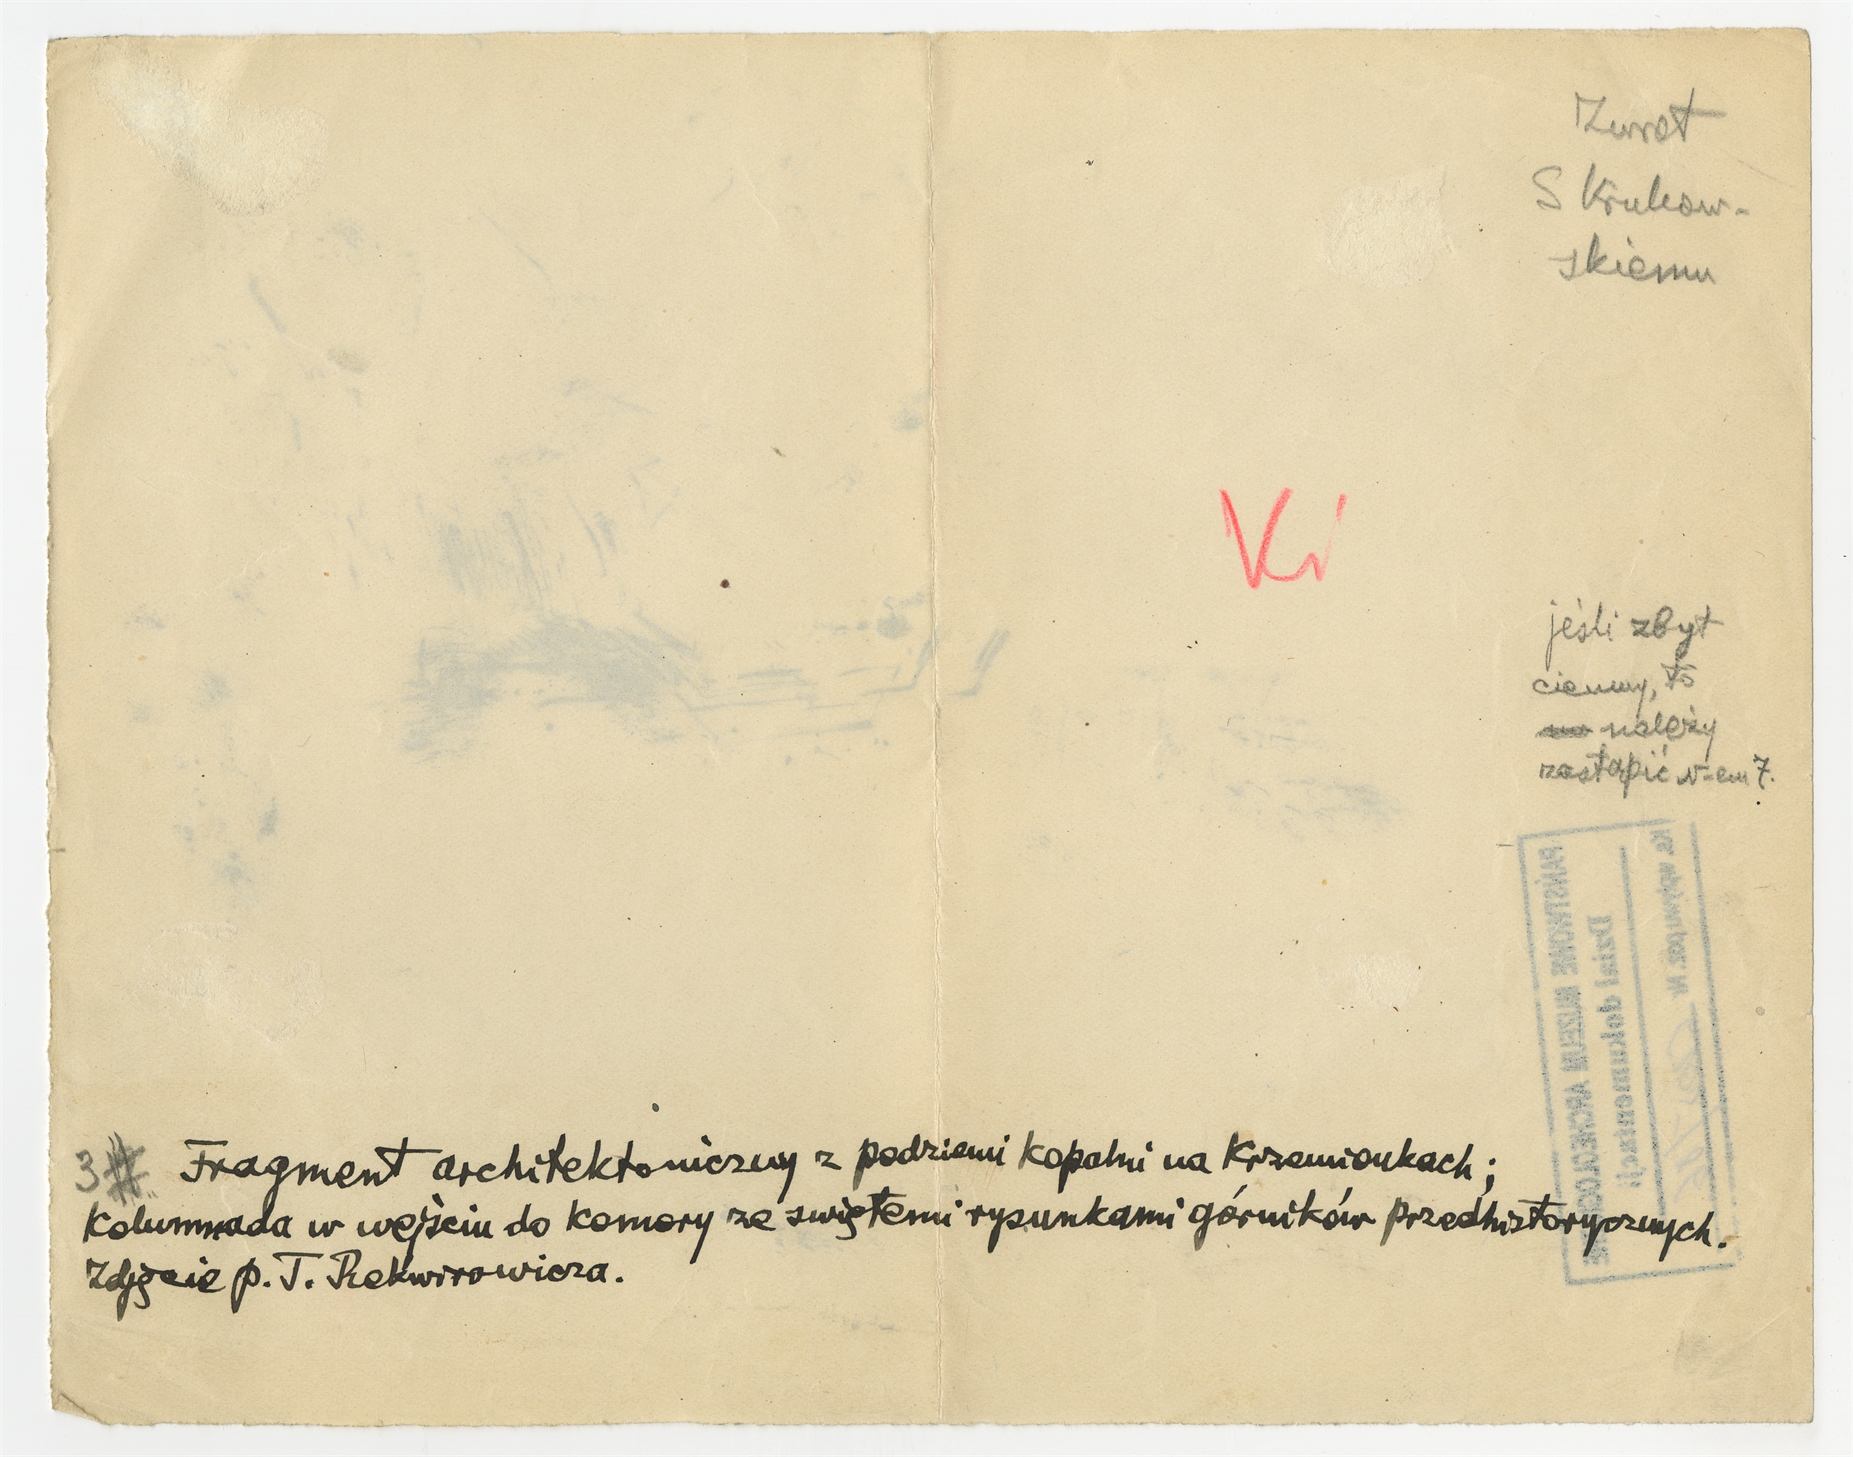 Zwrot
S Krukow-
skiemu
Ki
jeśli zbyt
ciemny, to
należy
zastąpić N-em 7.
PAŃSTWOWE MUZEUM ARCHEOLOGICZNE
Dział dokumentacji
Ks. wpływ. poz. N
3 Fragment architektoniczny z podziemi kopalni na Krzemionkach;
Kolumnada w wejściu do komory ze swiętemi rysunkami górników przedhistorycznych.
Zdjęcie p. T. Rekwirowicza.